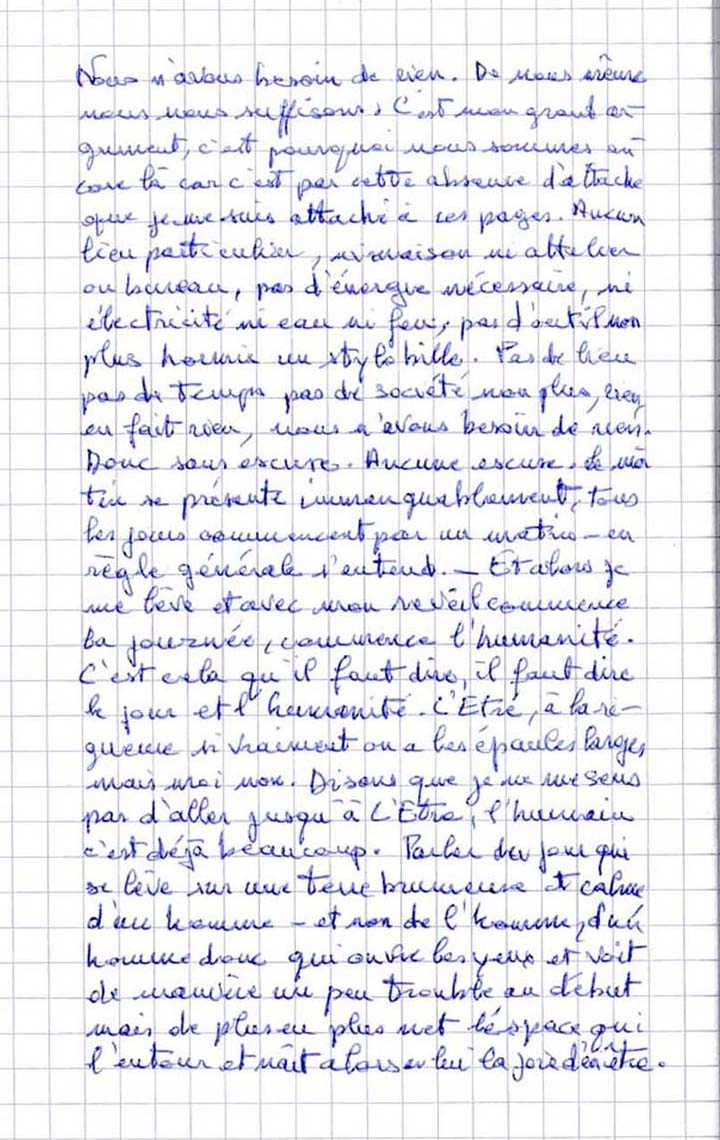 Nous n'avons besoin de rien. De nous même
nous nous suffisons. C'est mon grand ar-
gument, c'est pourquoi nous sommes en
core là car c'est par cette absence d'attache
que je me suis attaché à ces pages. Aucun
lieu particulier, ni maison ni attelier
ou bureau, pas d'énergie nécessaire, ni
électricité ni eau ni feu, pas d'outil non
plus hormis un stylo bille. Pas de lieu
pas de temps pas de société non plus, rien
en fait rien, nous n'avons besoin de rien.
Donc sans excuse. Aucune excuse. Le ma
tin se présente immanquablement, tous
les jours commencent par un matin - en
règle générale s'entend. - Et alors je
me lève et avec mon réveil commence
la journée, commence l'humanité.
C'est cela qu'il faut dire, il faut dire
le jour et l'humanité. L'Etre, à la ri-
gueur si vraiment on a les épaules larges,
mais moi non. Disons que je ne me sens
pas d'aller jusqu'à L'Etre, l'humain
c'est déjà beaucoup. Parler du jour qui
se lève sur une terre brumeuse et calme
d'un homme - et non de l'homme, d'un
homme donc qui ouvre les yeux et voit
de manière un peu trouble au début
mais de plus en plus net l'éspace qui
l'entour et naît alors en lui la joie d'en être.